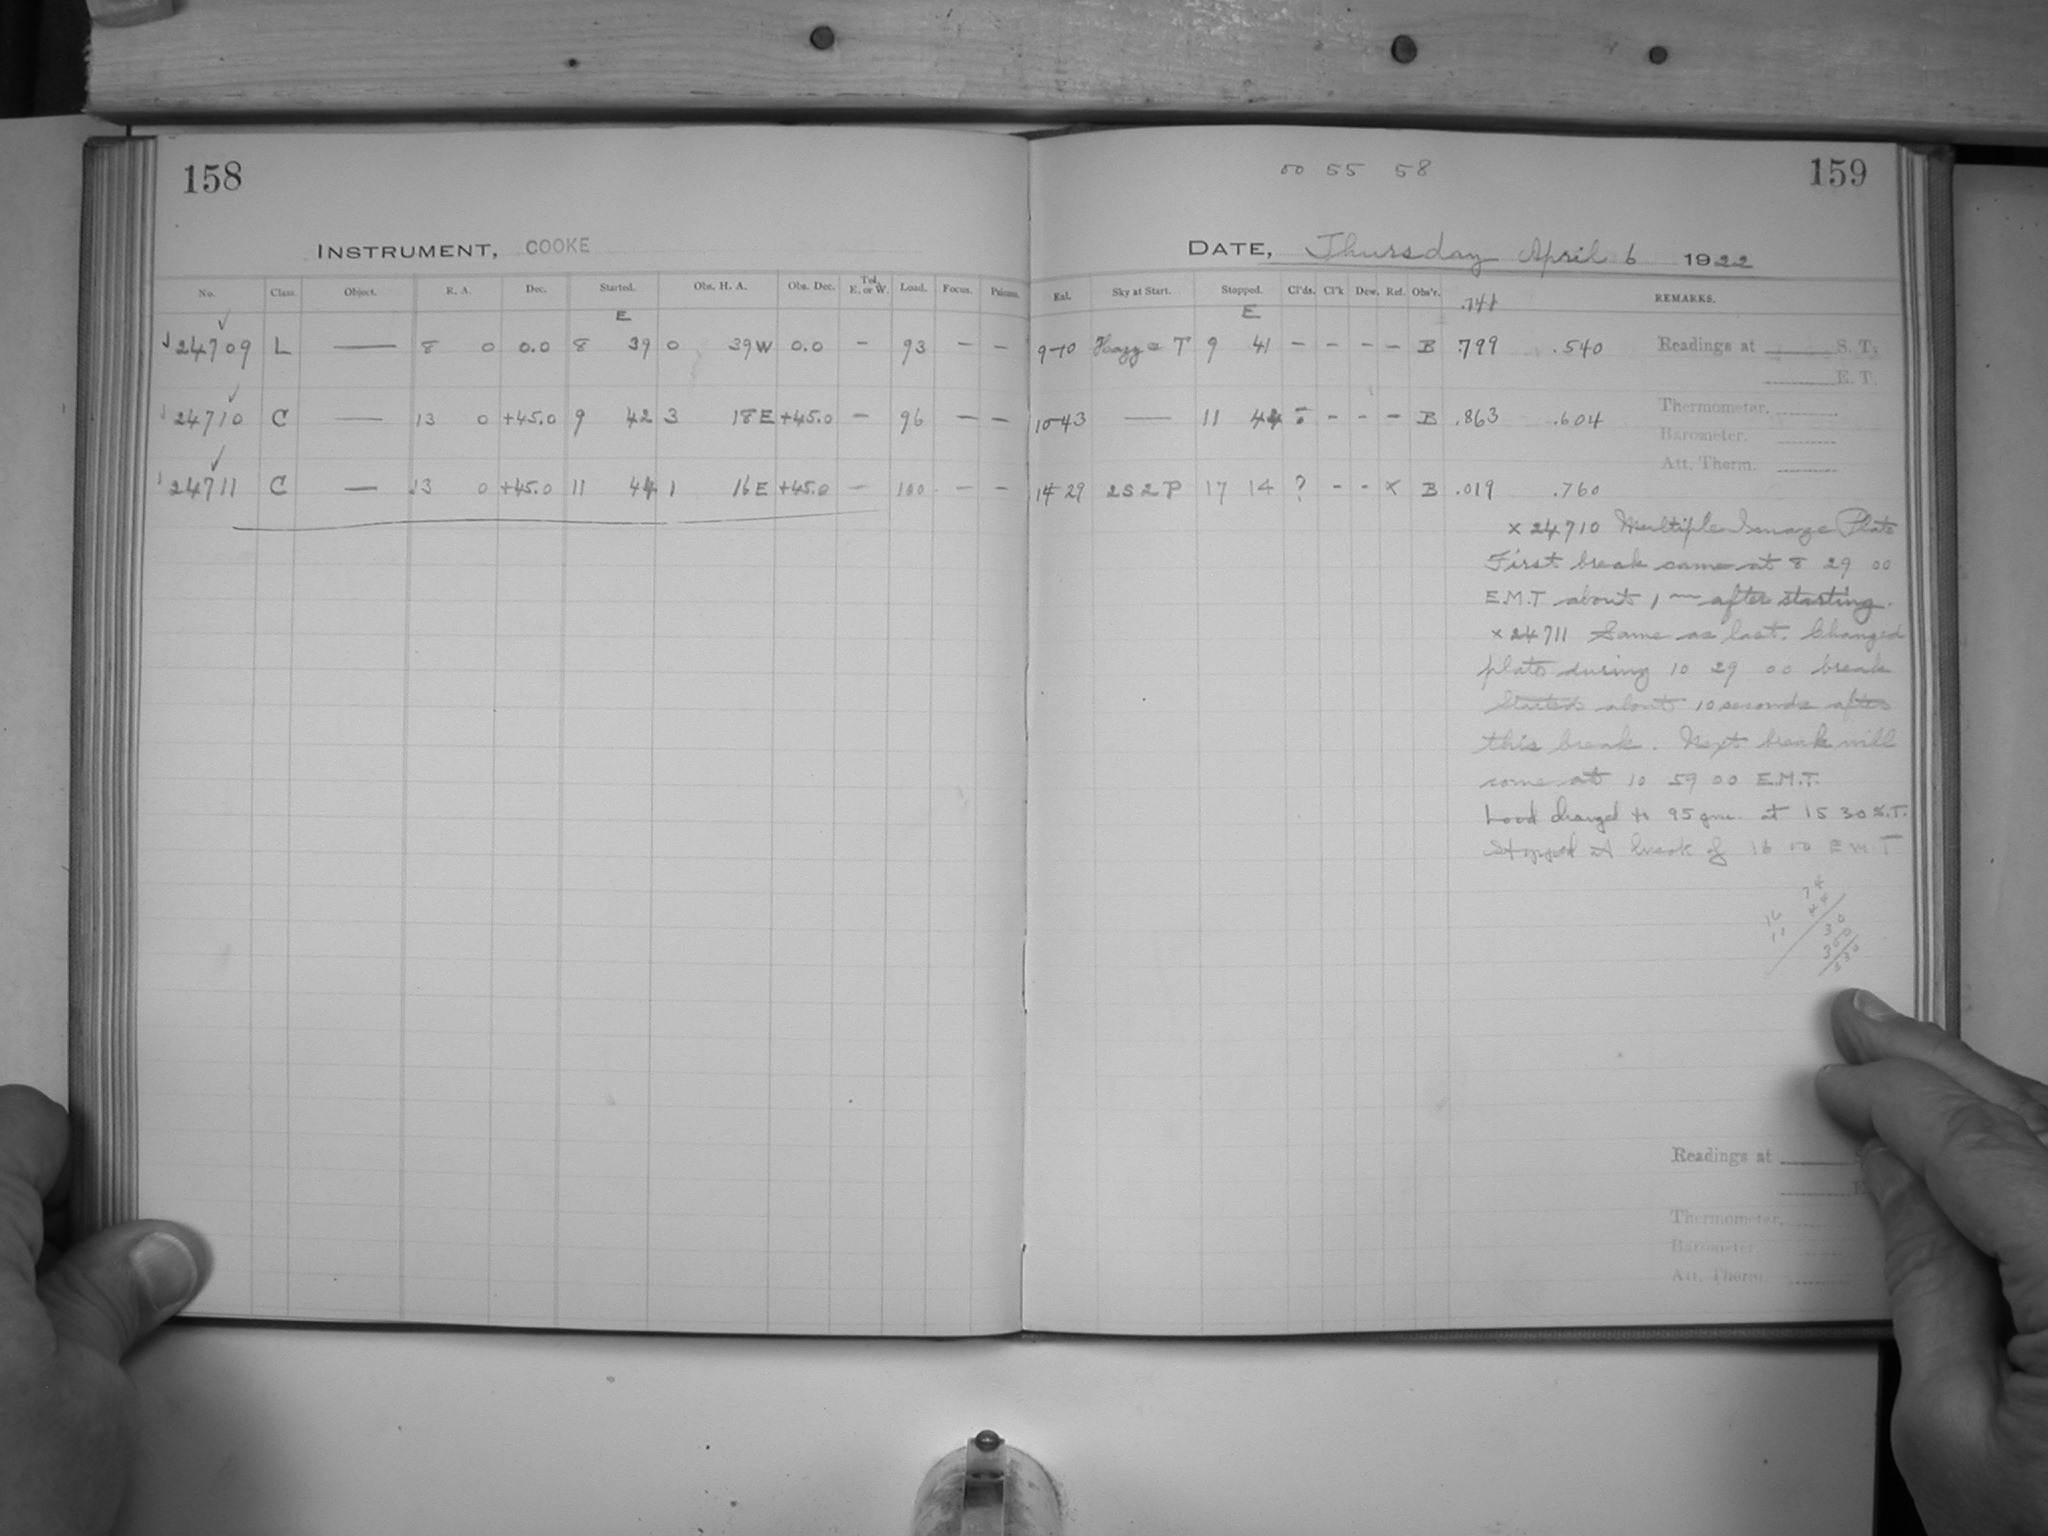 158
INSTRUMENT, COOKE
No. Class. Object. R. A. Dec. Started. Obs. H. A. Obs. Dec. Tel. E. or W. Load. Focus.
E
24709 L — 8 0 0.0 8 39 0 39W 0.0 - 93 - -
24710 C — 13 0 +45.0 9 42 3 18E +45.0 - 96 - -
24711 C — 13 0 +45.0 11 44 1 16E +45.0 - 100 - -
00 55 58
159
DATE, Thursday April 6 1922
Exl. Sky at Start. Stopped. Cl'ds. Cl'k. Dew. Ref. Obs'r. .741 REMARKS.
E
9-10 Hazy T 9 41 - - - - B .799 .540 Readings at S. T.
E. T.
10-43 — 11 44 - - - B .863 .604 Thermometer.
Barometer.
Att. Therm.
14 29 2S2P 17 14 ? - - x B .019 .760
x 24710 Multiple Image Plate
First break came at 8 29 00
E.M.T about 1 m after starting.
x 24711 Same as last. Changed
plate during 10 29 00 break
Started about 10 seconds after
this break. Next break will
come at 10 59 00 E.M.T.
Load changed to 95 gm. at 15 30 S.T.
Stopped at break of 16 00 E M T
74
44
30
300
330
16
11
Readings at
E
Thermometer.
Barometer.
Att. Therm.